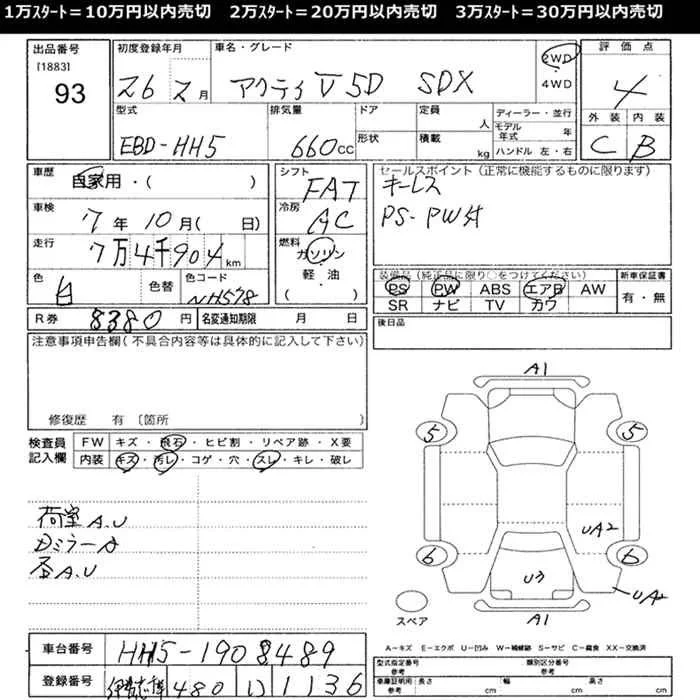 1万ｽﾀｰﾄ＝10万円以内売切　2万ｽﾀｰﾄ＝20万円以内売切　3万ｽﾀｰﾄ＝30万円以内売切
出品番号
[1883]
93
初度登録年月
26 2月
車名・グレード
アクティ V 5D SDX
2WD
4WD
評価点
4
外装 内装
C B
型式
EBD-HH5
排気量
660cc
ドア
形状
定員 人
積載 kg
ディーラー・並行
モデル年式 年
ハンドル 左・右
車歴
自家用・( )
車検
7年10月( 日)
走行
7万4千904km
色
白
色替
色コード
NH578
シフト
FAT
冷房
AC
燃料
ガソリン
軽・油
( )
セールスポイント(正常に機能するものに限ります)
キーレス
PS-PW付
装備品(純正品に限り○をつけてください)
PS PW ABS エアB AW
SR ナビ TV カワ
新車保証書
有・無
R券 8380円 名変通知期限 月 日
後日品
注意事項申告欄(不具合内容等は具体的に記入して下さい)
修復歴 有〔箇所
検査員
記入欄
FW キズ・飛石・ヒビ割・リペア跡・X要
内装 キズ・汚レ・コゲ・穴・スレ・キレ・破レ
荷室A.U
Dミラー A
A.U
A1
5 5
UA2
6 6
U3
UA2
A1
スペア
A－キズ E－エクボ U－凹み W－補修跡 S－サビ C－腐食 XX－交換済
車台番号
HH5-1908489
登録番号
480 い 1136
型式指定番号 類別区分番号
参考
車庫証明用
参考
長さ cm 幅 cm 高さ cm